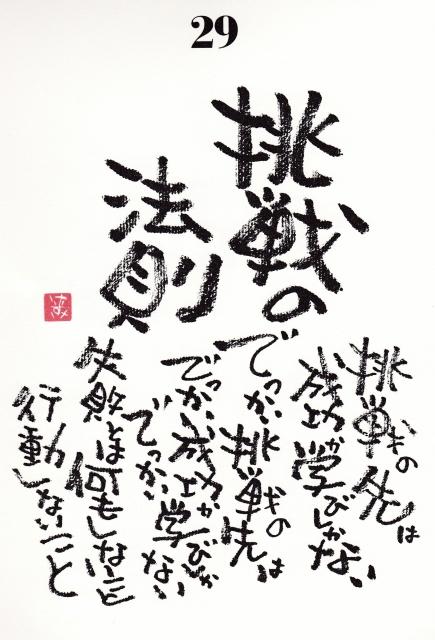 29
挑戦の
法則
挑戦の先は
成功か学びしかない
でっかい挑戦の先は
でっかい成功か
でっかい学びしかない
失敗とは何もしないこと
行動しないこと